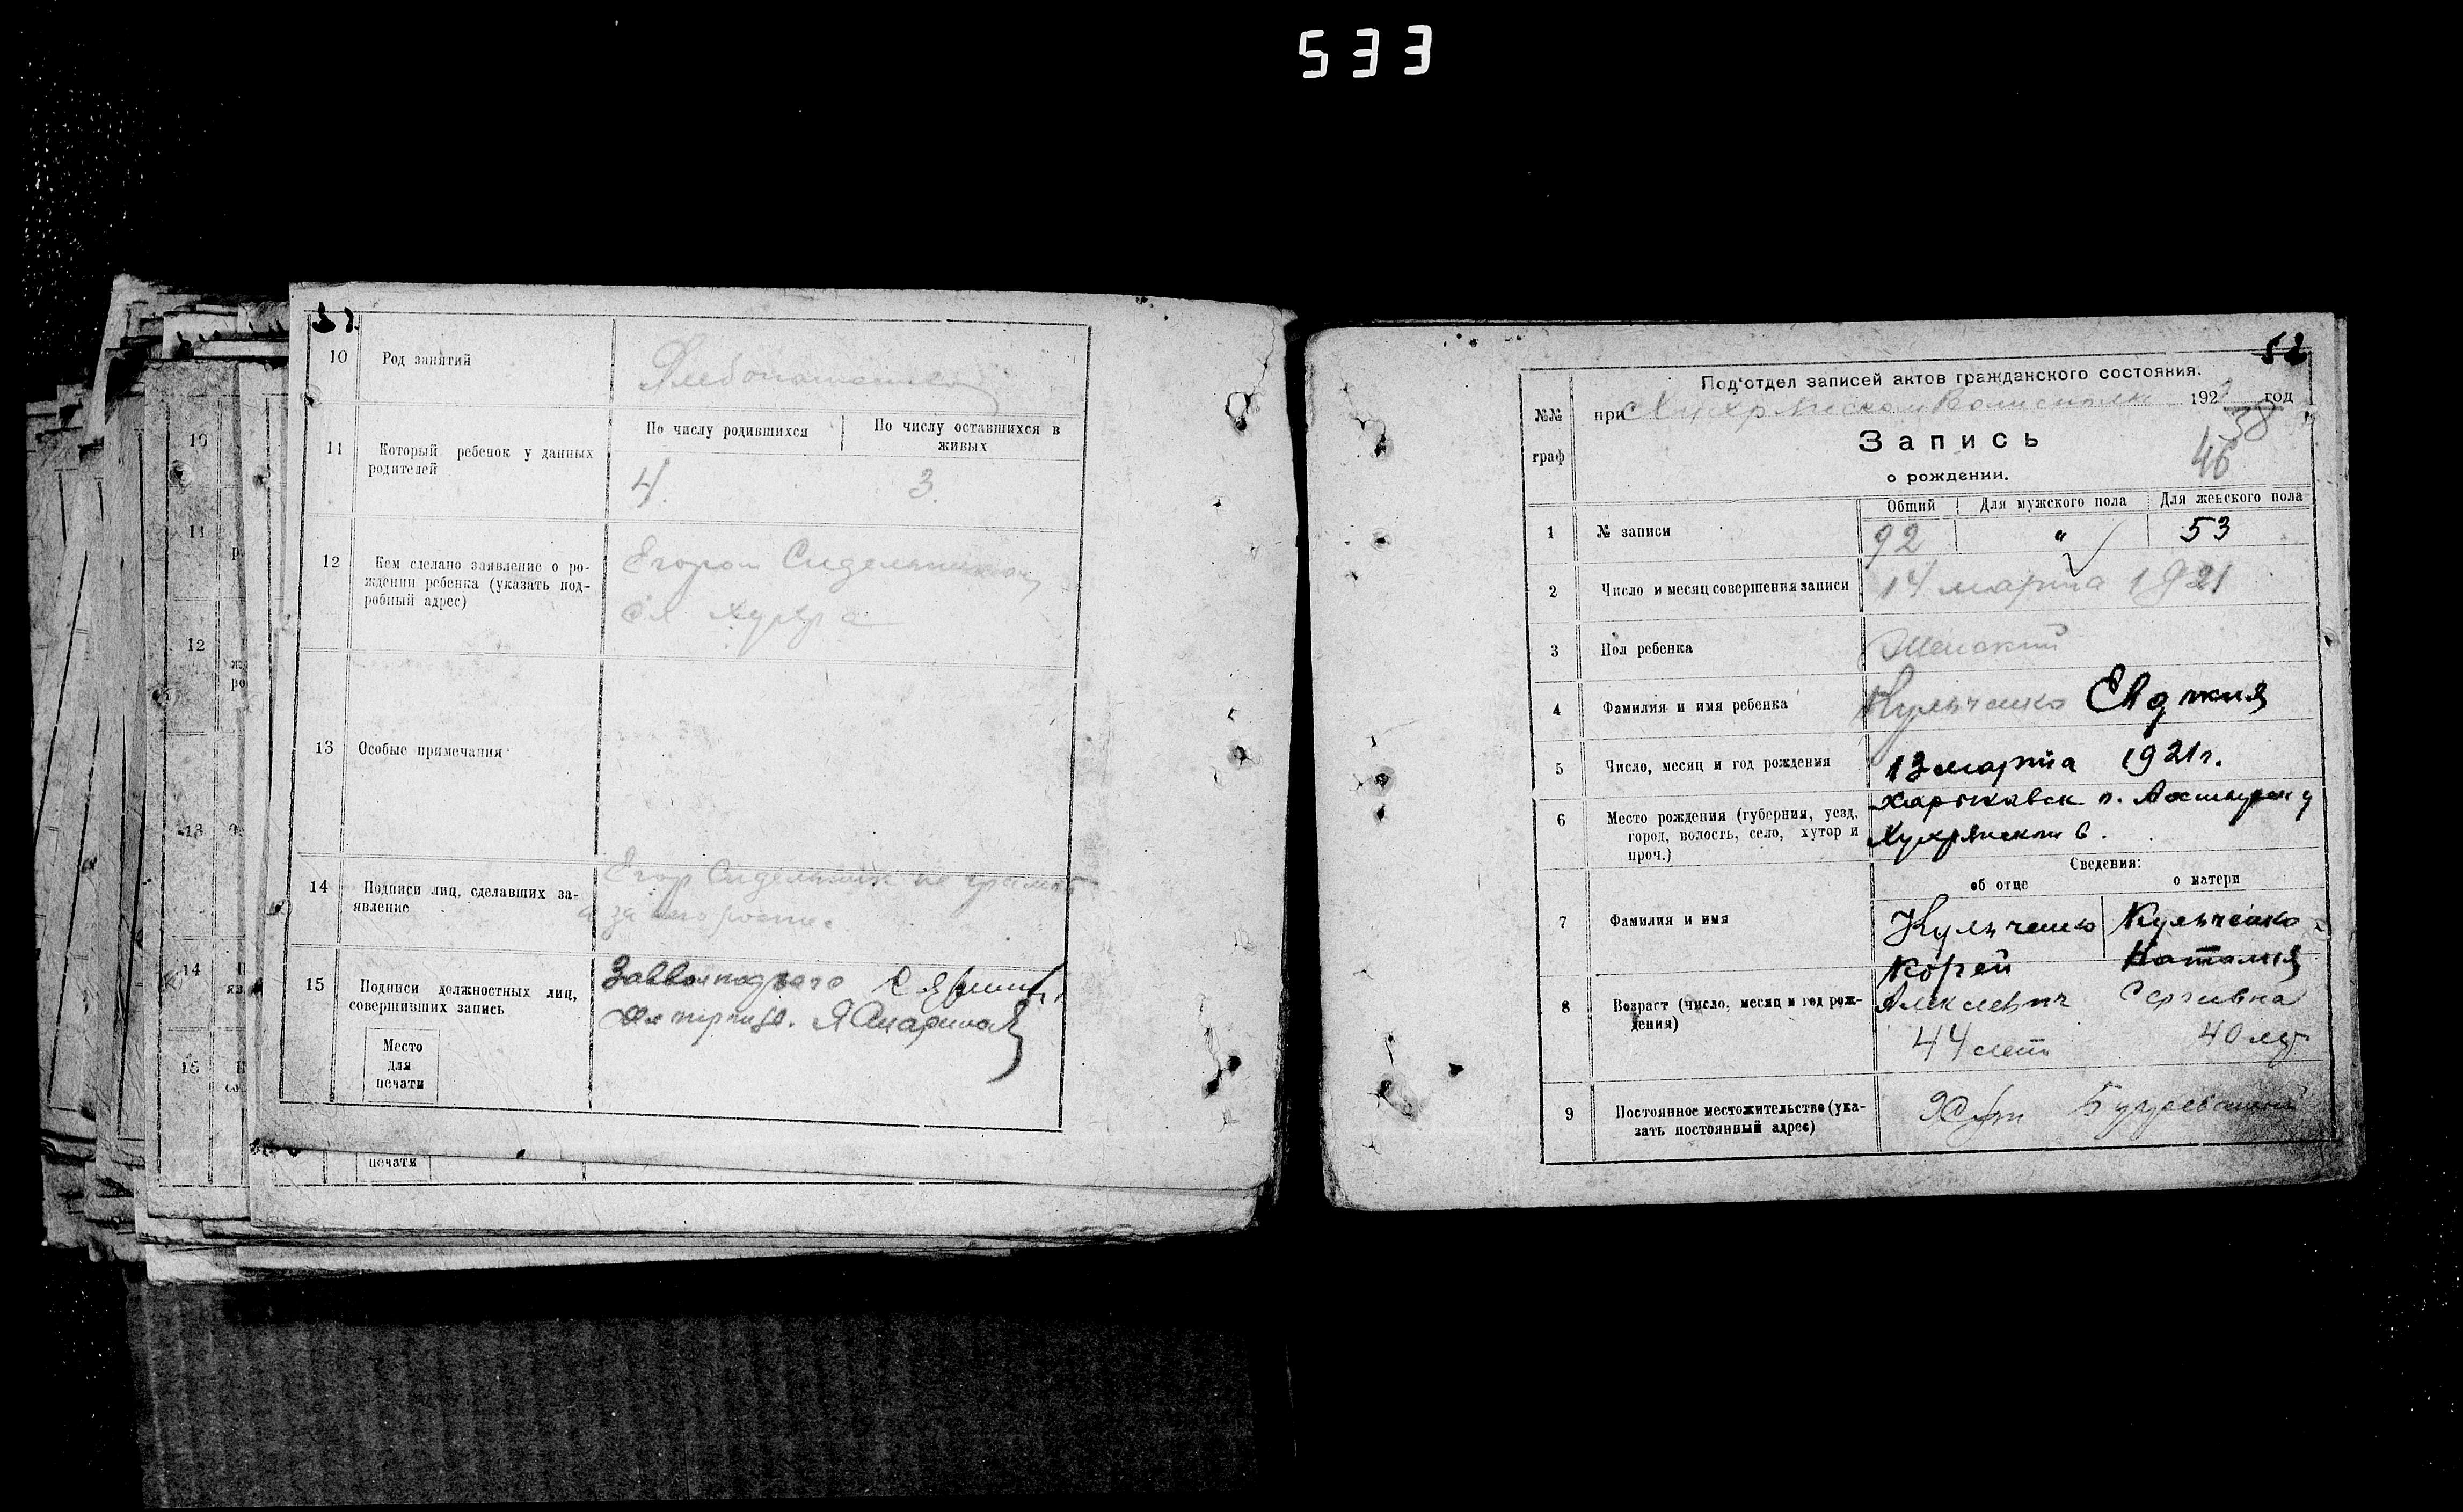 533
10 Род занятий
Хлебопашество
11 Который ребенок у данных
родителей
По числу родившихся
По числу оставшихся в
живых
4.
3.
12 Кем сделано заявление о ро-
ждении ребенка (указать под-
робный адрес)
Егором Сидельником
сл хухра
13 Особые примечания
14 Подписи лиц, сделавших за-
явление
Егор Сидельник не грамот
а за него
15 Подписи должностных лиц,
совершивших запись
Место
для
печати
10
11
12
13
14
15
печати
52
№№
граф
Под'отдел записей актов гражданского состояния.
при 192 год
38
46
Запись
о рождении.
Общий Для мужского пола Для женского пола
1 № записи 92 " 53
2 Число и месяц совершения записи 14 марта 1921
3 Пол ребенка Женский
4 Фамилия и имя ребенка Кульченко
5 Число, месяц и год рождения 13 марта 1921 г.
6 Место рождения (губерния, уезд,
город, волость, село, хутор и
проч.)
Хухрянской в.
Сведения:
об отце о матери
7 Фамилия и имя
Кульченко Кульченко
Корней Наталия
8 Возраст (число, месяц и год рож-
дения)
Сергивна
44 лет 40 лет
9 Постоянное местожительство (ука-
зать постоянный адрес)